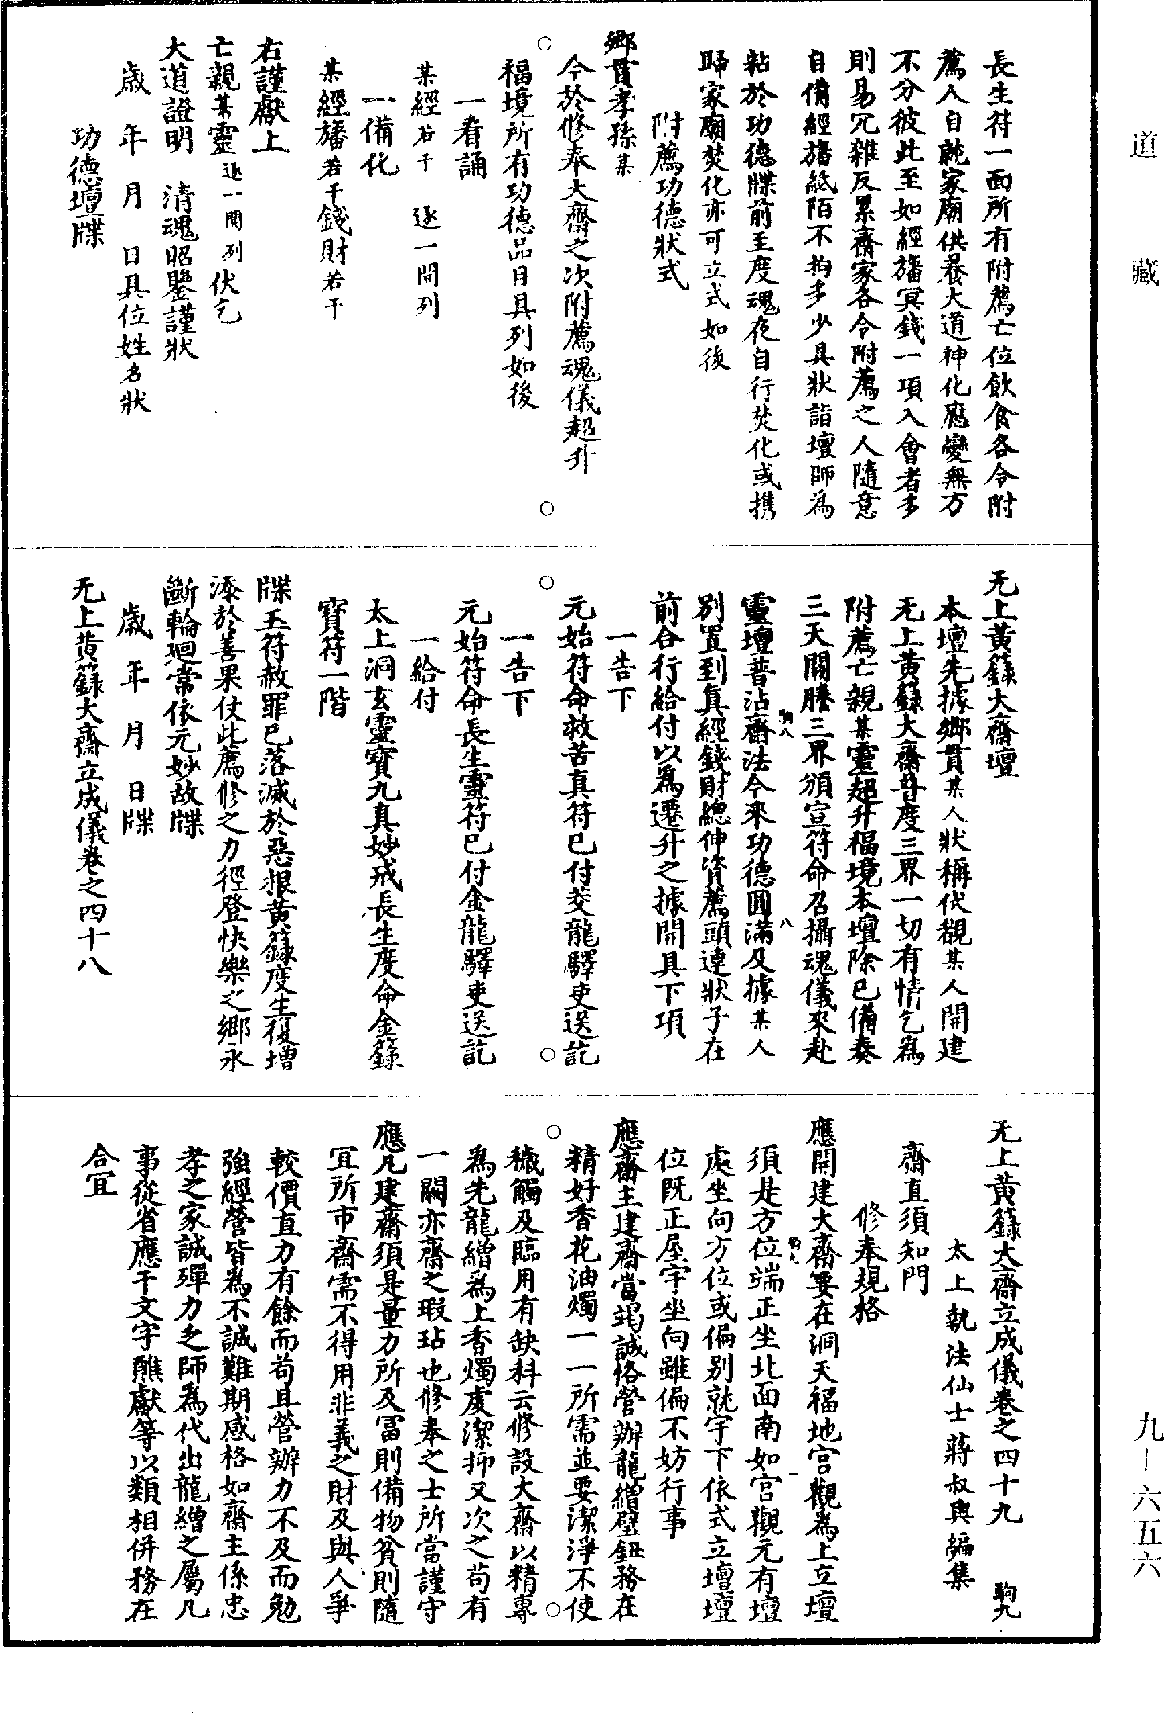 道藏
長生符一面所有附薦亡位飲食各令附
薦人自就家廟供養大道神化應變無方
不分彼此至如經旛冥錢一項入會者多
則易冗雜反累齋家各令附薦之人隨意
自備經旛紙陌不拘多少具狀詣壇師為
黏於功德牒前至度魂夜自行焚化或携
歸家廟焚化亦可立式如後
附薦功德狀式
鄉貫孝孫某
今於修奉大齋之次附薦魂儀超升
福境所有功德品目具列如後
一看誦
某經若干 逐一開列
一備化
某經旛若干錢財若干
右謹獻上
亡親某靈逐一開列伏乞
大道證明 清魂昭鑒謹狀
歲 年 月 日具位姓名狀
功德壇牒
无上黃籙大齋壇
本壇先據鄉貫某人狀稱伏覩某人開建
无上黃籙大齋普度三界一切有情乞為
附薦亡親某靈超升福境本壇除已備奏
三天關牒三界頒宣符命召攝魂儀來赴
靈壇普沾齋法今來功德圓滿及據某人
別置到真經錢財總伸資薦頭連狀子在
前合行給付以為遷升之據開具下項
一告下
元始符命救苦真符已付交龍驛吏送訖
一告下
元始符命長生靈符已付金龍驛吏送訖
一給付
太上洞玄靈寶九真妙戒長生度命金籙
寶符一階
牒玉符赦罪已落滅於惡根黃籙度生復增
添於善果仗此薦修之力徑登快樂之鄉永
斷輪迴常依元妙故牒
歲 年 月 日牒
无上黃籙大齋立成儀卷之四十八
无上黃籙大齋立成儀卷之四十九 駒九
太上執法仙士蔣叔輿編集
齋直須知門
修奉規格
應開建大齋要在洞天福地宮觀為上立壇
須是方位端正坐北面南如宮觀元有壇
處坐向方位或偏別就宇下依式立壇壇
位既正屋宇坐向雖偏不妨行事
應齋主建齋當竭誠恪營辦龍繒璧鈕務在
精好香花油燭一一所需並要潔淨不使
穢觸及臨用有缺科云修設大齋以精專
為先龍繒為上香燭虔潔抑又次之苟有
一闕亦齋之瑕玷也修奉之士所當謹守
應凡建齋須是量力所及富則備物貧則隨
宜所市齋需不得用非義之財及與人爭
較價直力有餘而苟且營辦力不及而勉
強經營皆為不誠難期感格如齋主係忠
孝之家誠殫力乏師為代出龍繒之屬凡
事從省應干文字醮獻等以類相併務在
合宜
九－六五六